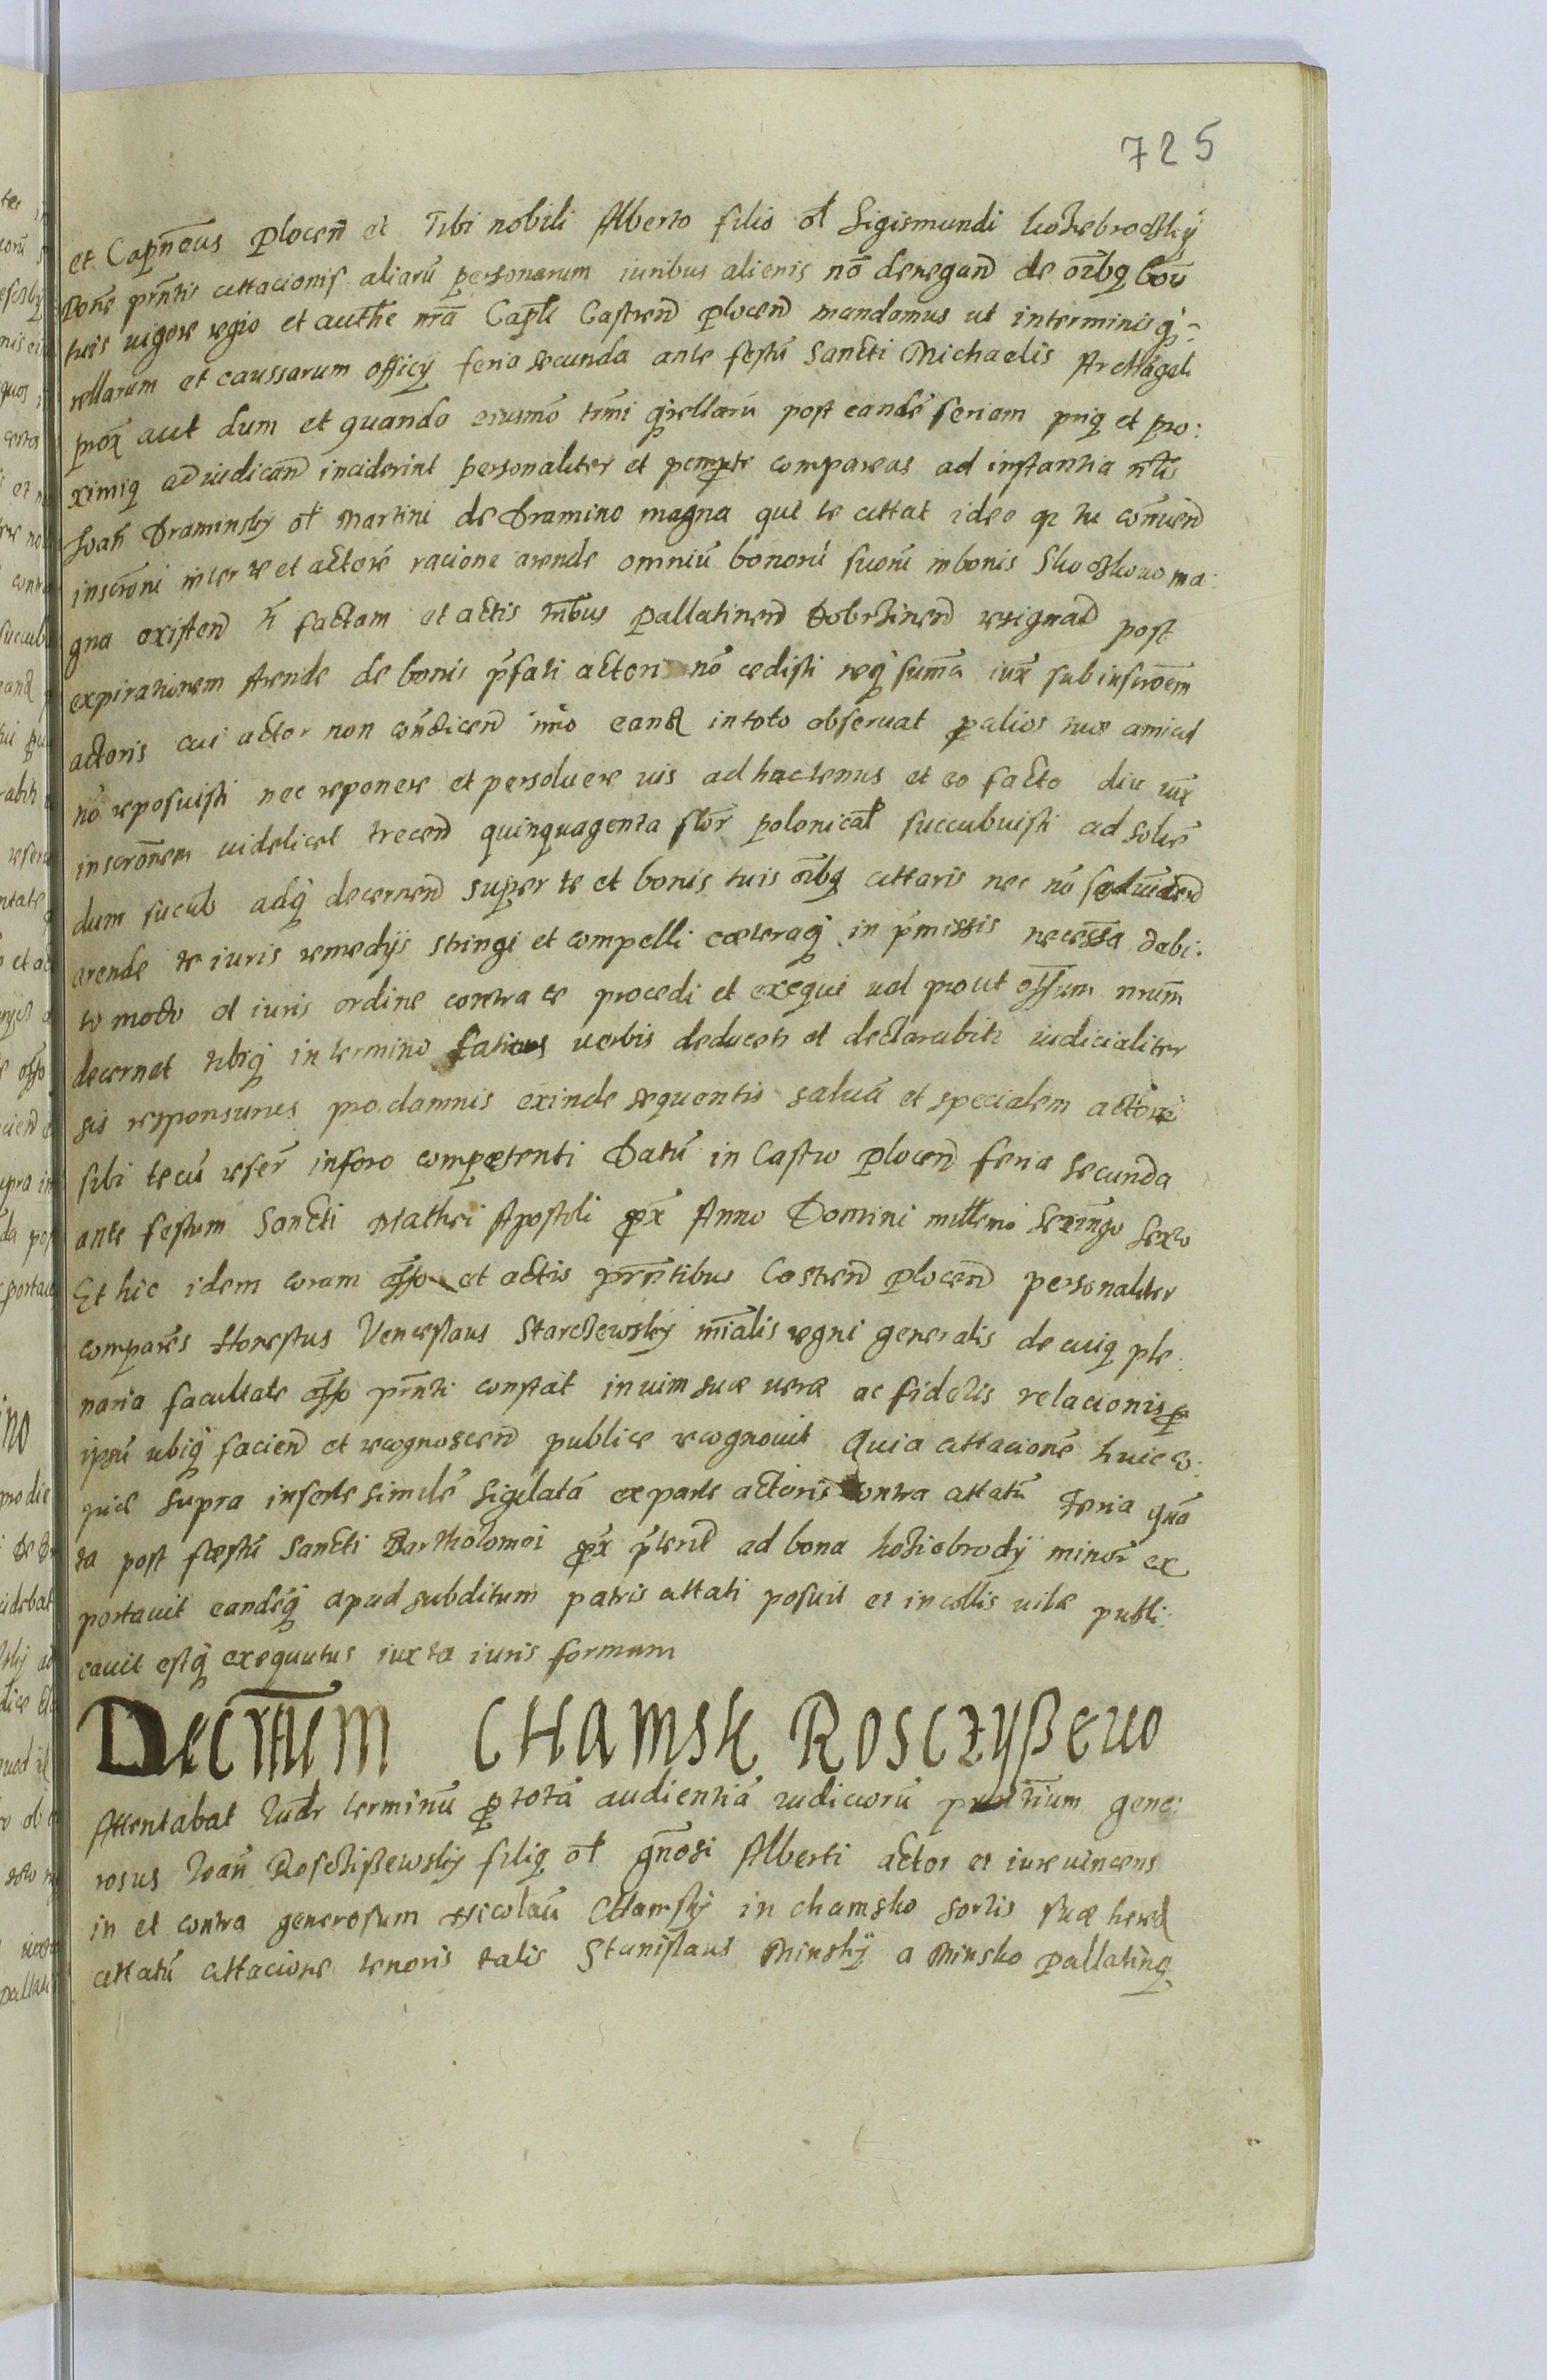 725
et Capneus Plocen et Tibi nobili Alberto filio ol Sigismundi kozebrodzky
Rone prntis cittacionis aliaru personarum iuribus alienis no denegand de oibq bon
tuis uigore regio et authe nra Capli Castren plocen mandamus ut interminis q:
rellarum et caussarum officy feria secunda ante festu Sancti Michaelis Archageli
prox aut dum et quando eiusmo trmi qrellaru post eande feriam priq et pro:
ximiq ad iudican inciderint personaliter et pempte compareas ad instantia nlis
Joan Draminsky ol Martini de Dramino magna qui te cittat ideo qr tu conuen
inscroni inter te et actore racione arende omniu bonoru suoru in bonis
gna existen factam et actis pallatinen Dobrzinen resignad post
expirationem Arende de bonis pfati actori no cedisti req suma iux sub inscroem
actoris cui actor non condicen imo eand in toto obseruat p alios tuos amicos
no reposuisti nec reponere et persoluere uis ad hactenus et eo facto diu iux
inscronem uidelicet trecen quinquagenta flor polonical succubuisti ad solue
dum sucub adq decernen super te et bonis tuis oibq cittaris nec no
arende te iuris remedys stringi et compelli cæteraq in pmissis necessa debi:
to modo et iuris ordine contra te procedi et exequi uel prout offum nrum
decernet tibiq in termino latius uerbis deducetr et declarabitr iudicialiter
sis responsurus pro damnis exinde sequentis salua et specialem actore
sibi tecu reser in foro competenti Datu in Castro plocen feria secunda
ante festum Sancti Mathei Apostoli prox Anno Domini millemo sexingo sexto
Et hic idem coram offo et actis prntibus Castren plocen personaliter
compares Honestus Venceslaus Starczewsky mialis regni generalis de cuiq ple:
naria facultate offo prnti constat in uim suæ ueræ ac fidelis relacionis p
ipsu ubiq facien et recognoscen publice recognouit Quia cittacione huic co:
piæ supra inserte simile sigilata ex parte actoris contra cittatu feria qua
ta post fæstu Sancti Bartholomei prox pterit ad bona koziebrody minor ex
portauit eandeq apud subditum patris cittati posuit et incollis uillæ publi:
cauit estq exequutus iuxta iuris formam
Decrtum CHamsk Rosczyßeuo
Attentabat terminu p tota audientia iudicioru gene:
rosus Joan Rosczißewsky filiq ol gnosi Alberti actor et iure uincens
in et contra generosum Nicolau Chamsky in chamsko sortis suæ hered
cittatu cittacione tenoris talis Stanislaus Minsky a Minsko pallatinq